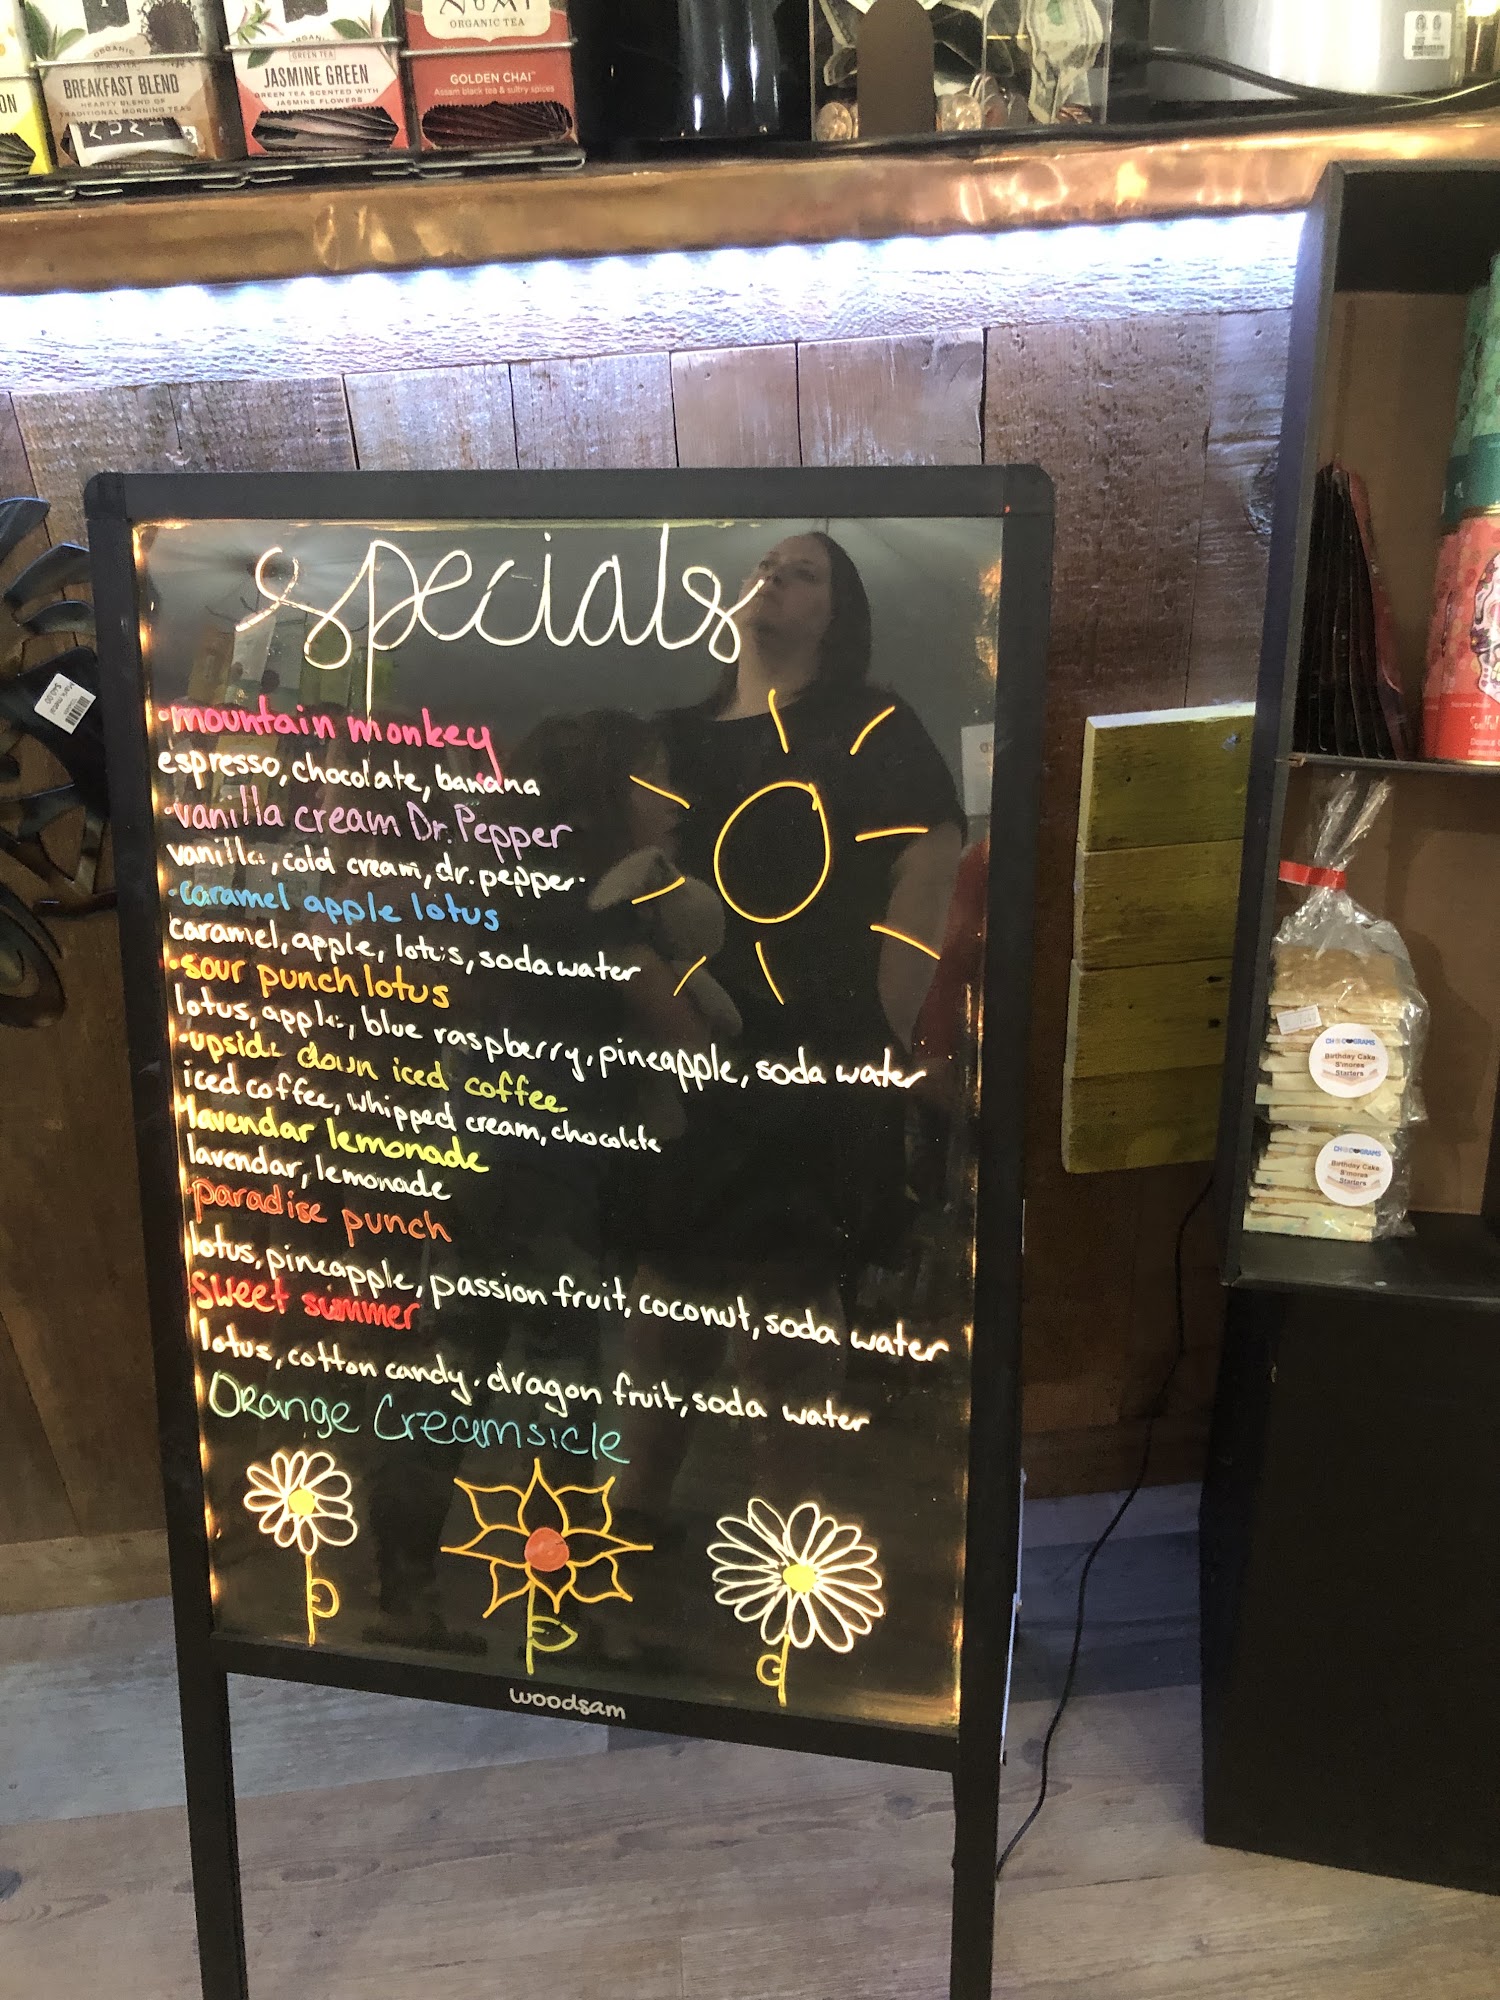 NUMI
ORGANIC TEA
ORGANIC
BREAKFAST BLEND
HEARTY BLEND OF
TRADITIONAL MORNING TEAS
ORGANIC
GREEN TEA
JASMINE GREEN
GREEN TEA SCENTED WITH
JASMINE FLOWERS
GOLDEN CHAI™
Assam black tea & sultry spices
ON
specials
·mountain monkey
espresso, chocolate, banana
·vanilla cream Dr. Pepper
vanilla, cold cream, dr. pepper
·caramel apple lotus
caramel, apple, lotus, soda water
·sour punch lotus
lotus, apple, blue raspberry, pineapple, soda water
·upside down iced coffee
iced coffee, whipped cream, chocolate
·lavendar lemonade
lavendar, lemonade
·paradise punch
lotus, pineapple, passion fruit, coconut, soda water
sweet summer
lotus, cotton candy, dragon fruit, soda water
Orange Creamsicle
woodsam
$40.00
CHOCOGRAMS
Birthday Cake
S'mores
Starters
CHOCOGRAMS
Birthday Cake
S'mores
Starters